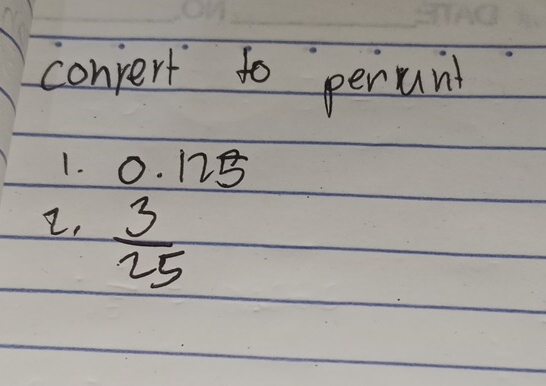 convert to percunt
1. 0.125
2. 3/25